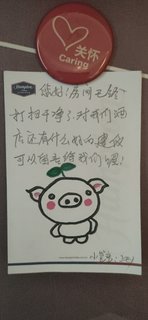 关怀
Caring
您好!房间已经
打扫干净了,对我们酒
店还有什么好的建议
可以留言给我们喔!